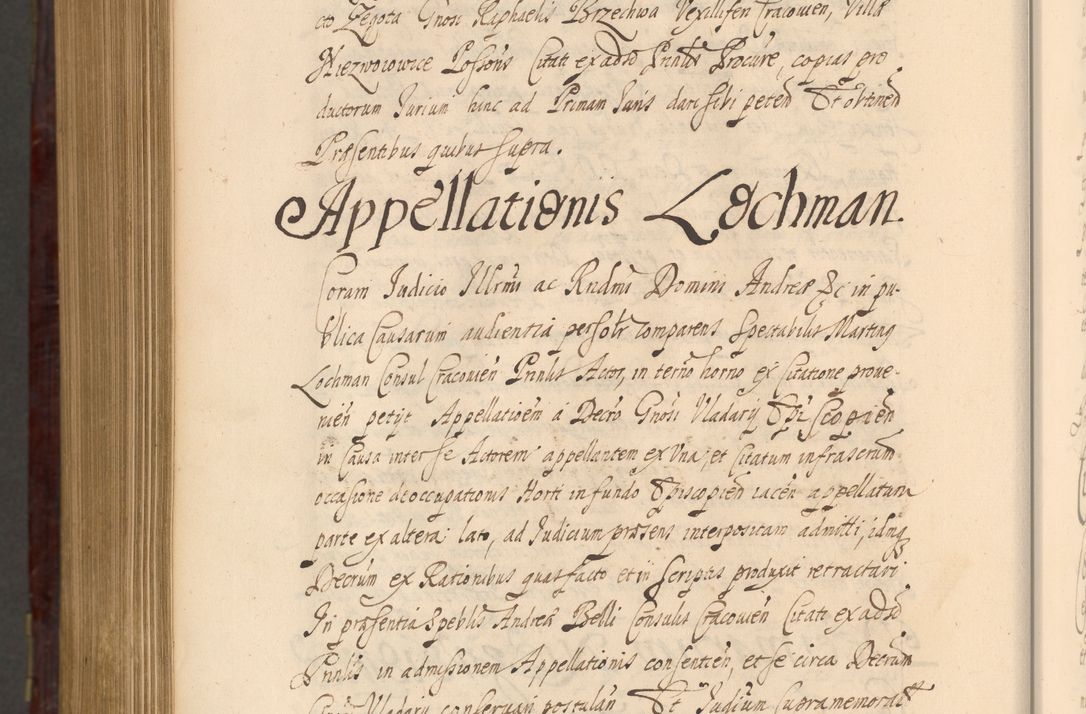 cto Zegota Gnosi Raphaelis Brzechwa Vexilliferi Cracovien, Villæ
Niezwoiowice Possoris Citati ex adso Prinlis Procure, copias pro
ductorum Iurium hinc ad Primam Iuris dari sibi peten Et obtinen
Præsentibus quibus supra.
Appellationis Lochman.
Coram Iudicio Illrmi ac Rndmi Domini Andreæ &c in pu-
blica Causarum audientia personlr comparens Spectabilis Martinq
Lochman Consul Cracovien Prinlis Actor, in terno horno ex Citatione prove-
nien petyt Appellationem à Decro Gnosi Vladarij Episcopien
in Causa inter se Actorem appellantem ex Vna, et Citatum infrascrum
occasione deoccupationis Horti in fundo Episcopien iacen appellatum
parte ex altera lato, ad Iudicium præsens interpositam admitti, idq
Decrum ex Rationibus quas facto et in scriptis produxit retractari
In præsentia Speblis Andreæ Belli Consulis Cracovien Citati ex adso
Prinlis in admissionem Appellationis consentien, et se circa Decrum
Vladarij conservari postulan Et Iudium supramemorat